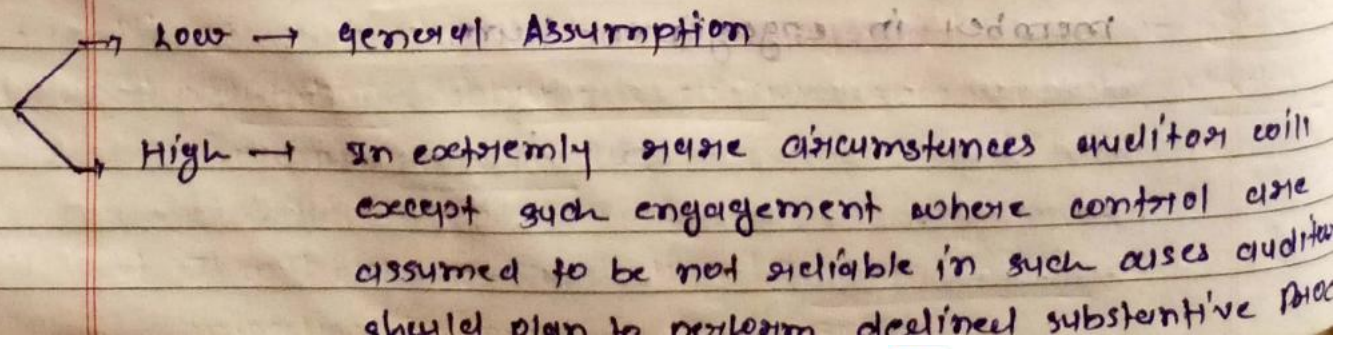 → Low → general Assumption
→ High → In extremly rare circumstances auditor will
except such engagement where control are
assumed to be not reliable in such cases auditor
should plan to perform substantive